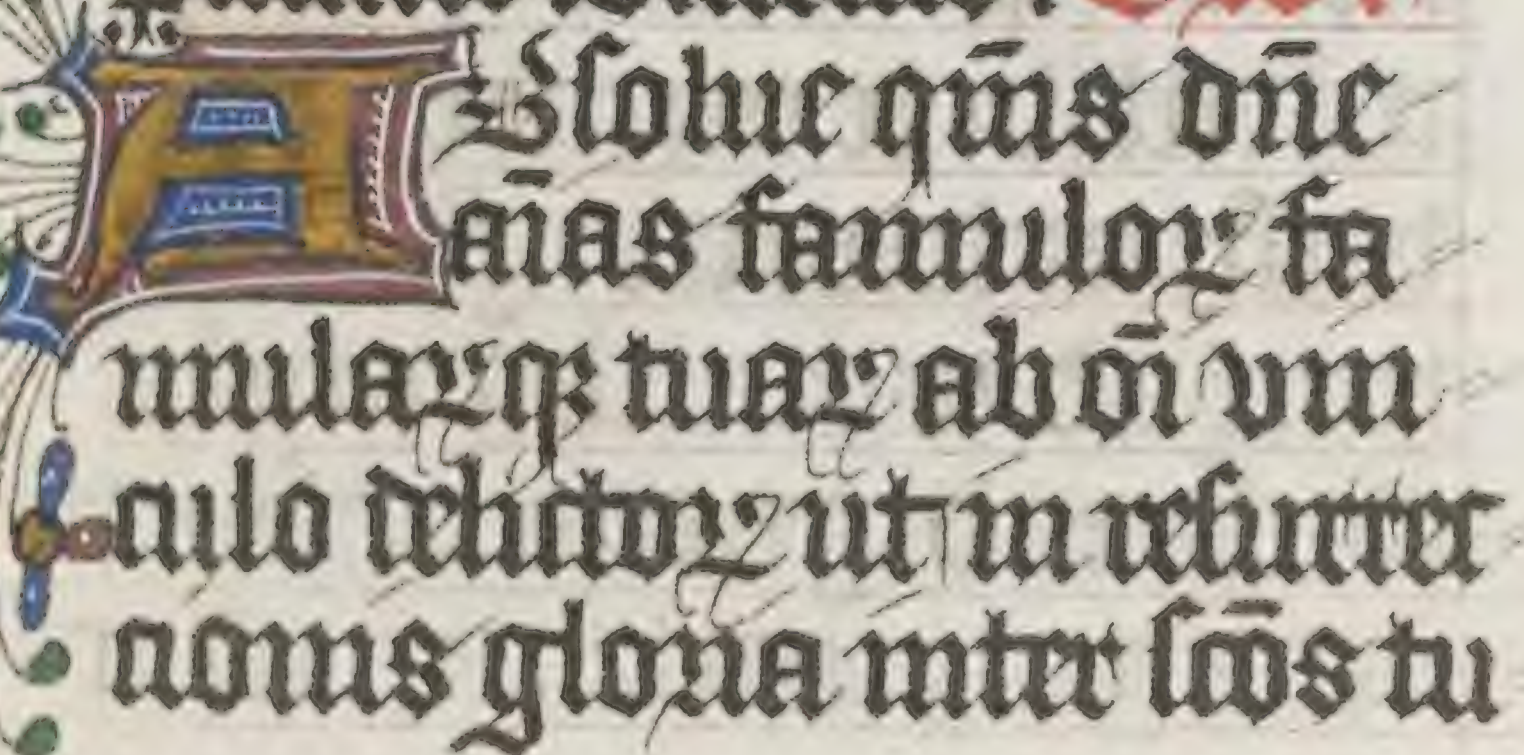 ABsolue qm̄s dn̄e
aīas famuloꝝ fa
mulaꝝqꝫ tuaꝝ ab oī vin
culo delictoꝝ ut in resurrec
tionis gloria inter sc̄os tu